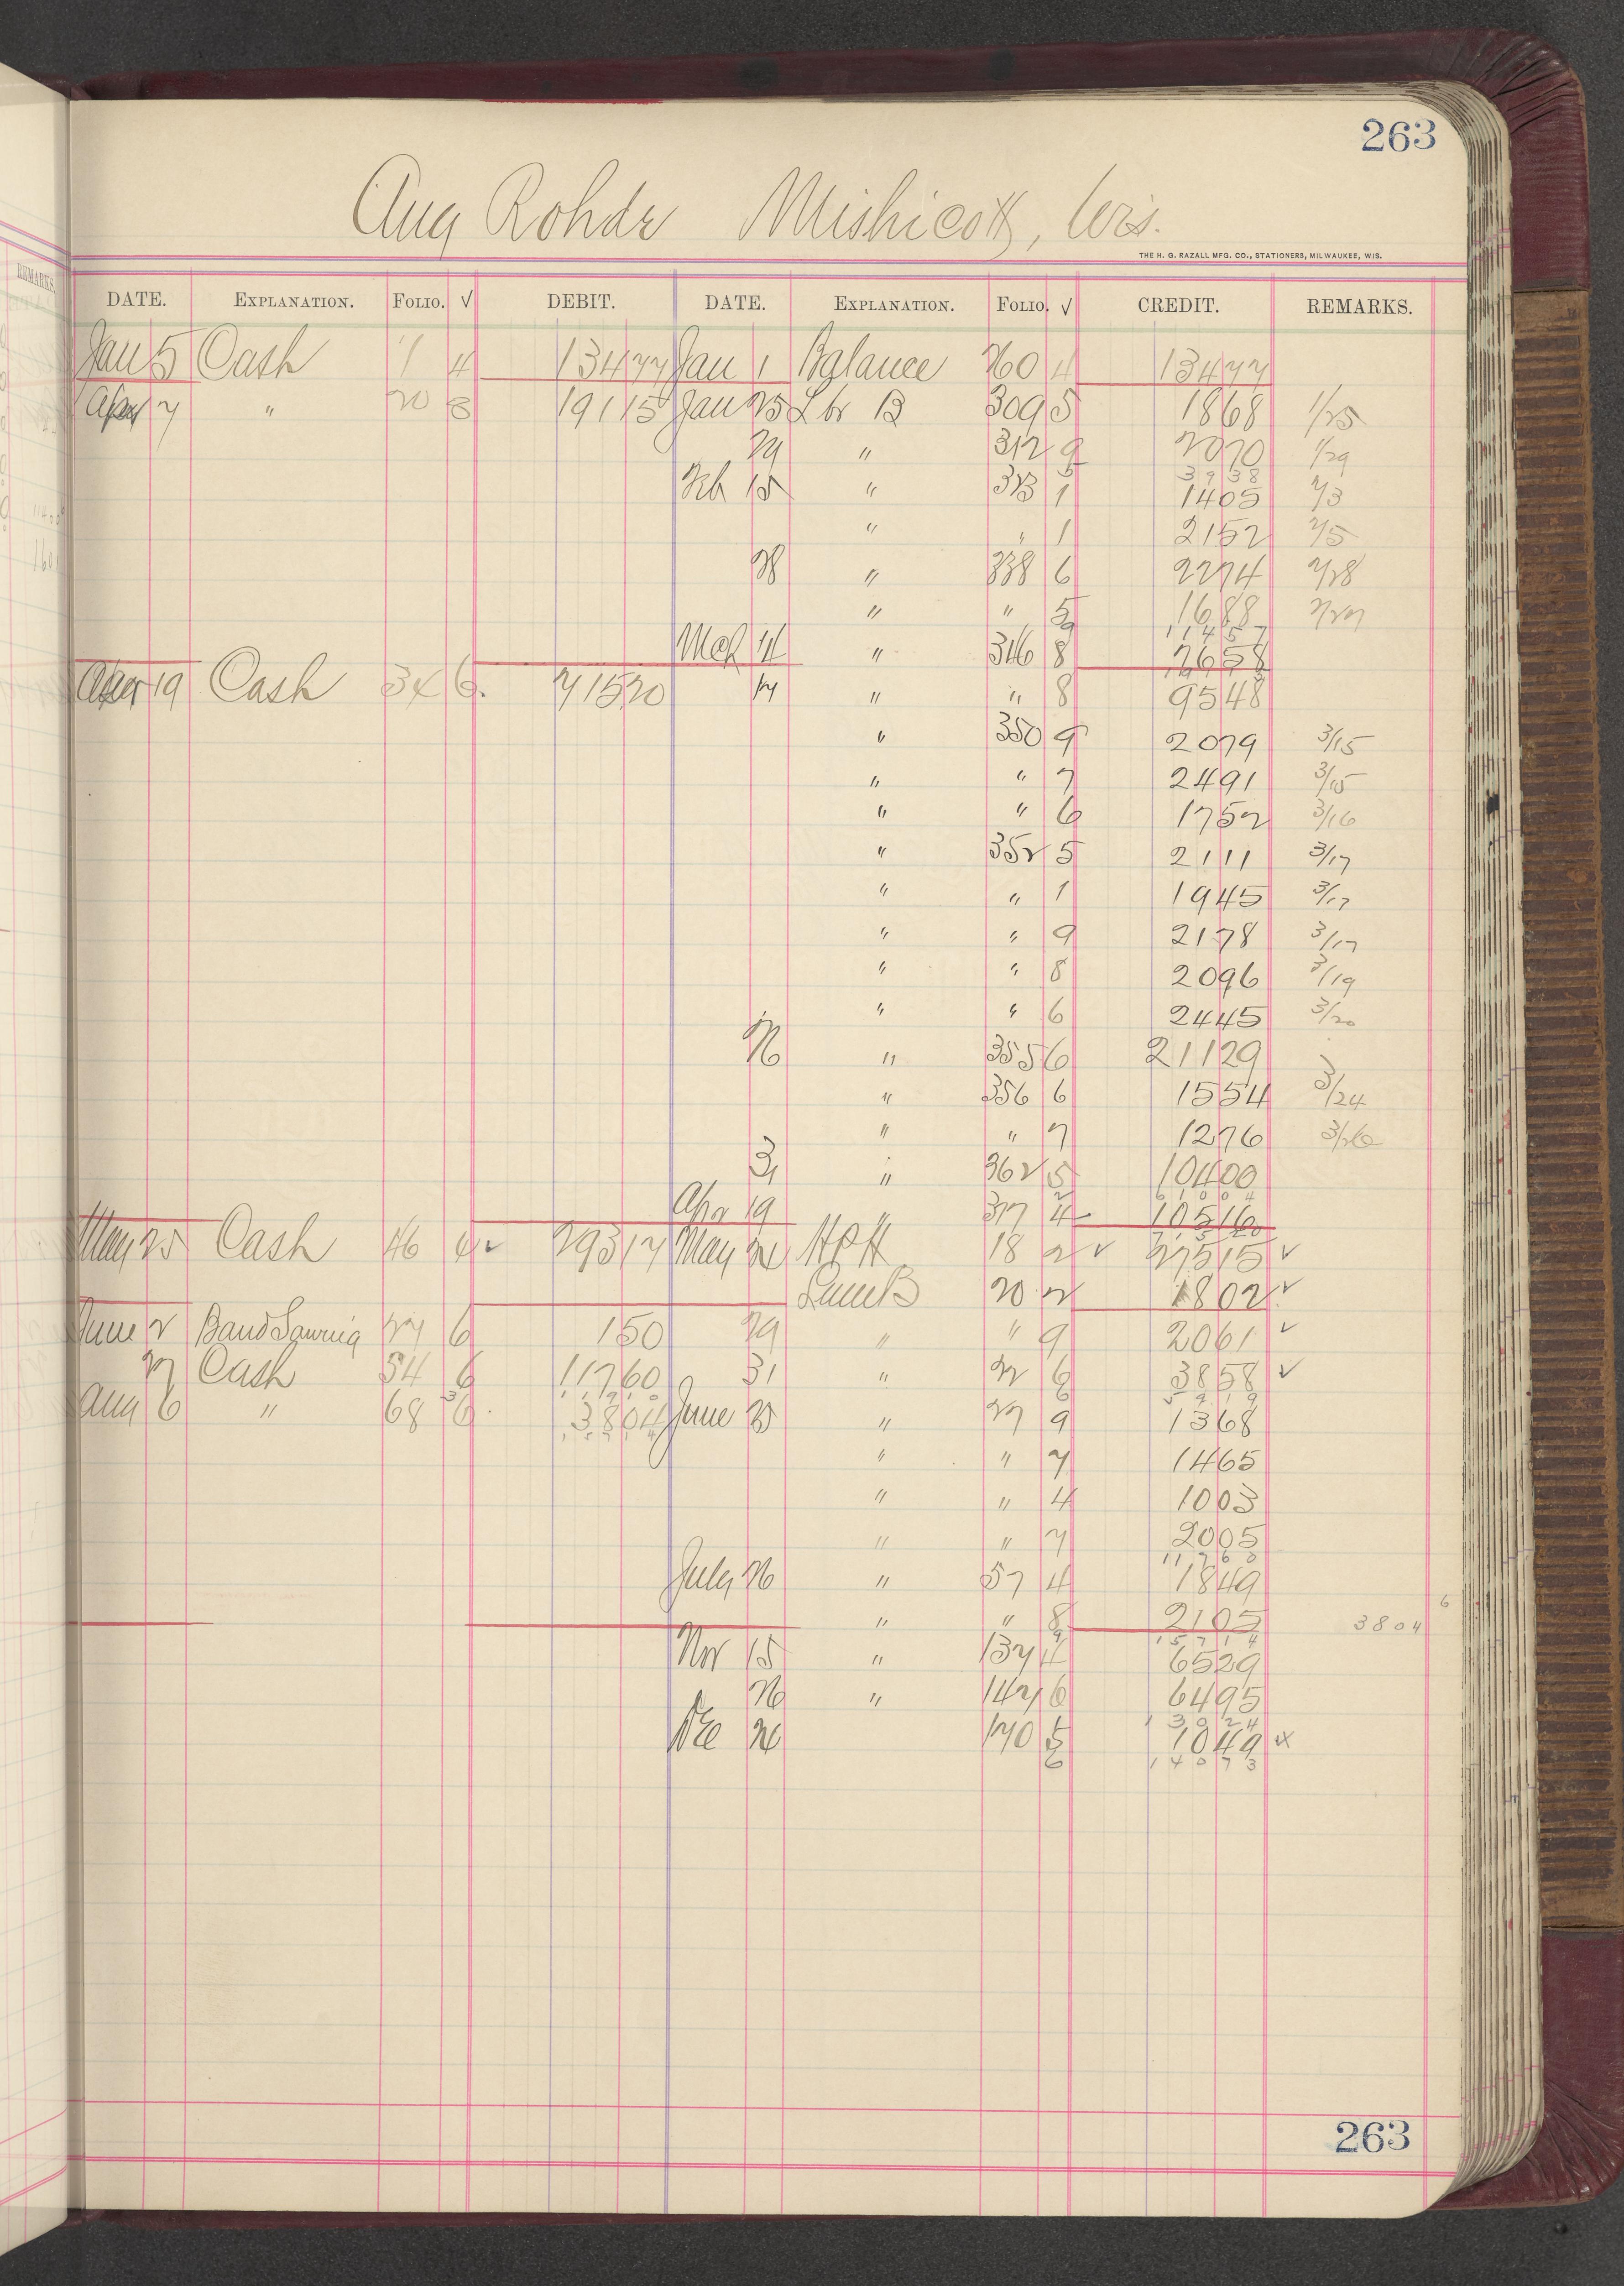 263
Aug Rohde Mishicott, Wis.
THE H. G. RAZALL MFG. CO., STATIONERS, MILWAUKEE, WIS.
DATE. EXPLANATION. FOLIO. √ DEBIT. DATE. EXPLANATION. FOLIO. √ CREDIT. REMARKS.
Jan 5 Cash 1 4 13477 Jan 1 Balance 260 4 13477
Apr 7 " 20 8 19115 Jan 25 Lbr B 309 5 1868 1/25
29 " 312 9 2070 1/29
5 3938
Feb 15 " 323 1 1405 2/3
" " 1 2152 2/5
28 " 338 6 2274 2/28
" " 5 1688 2/27
9 11457
Mch 14 " 346 8 7658
Apr 19 Cash 34 6 71520 17 " " 8 9548
" 350 9 2079 3/15
" " 7 2491 3/15
" " 6 1752 3/16
" 352 5 2111 3/17
" " 1 1945 3/17
" " 9 2178 3/17
" " 8 2096 3/19
" " 6 2445 3/20
26 " 355 6 21129
" 356 6 1554 3/24
" " 7 1276 3/26
31 " 362 5 10400
2 61004
Apr 19 " 377 4 10516
May 25 Cash 46 4 √ 29317 May 24 H P H 18 2 √ 27515 √
Lum B 20 2 1802 √
June 2 Band Sawing 27 6 150 29 " " 9 2061 √
27 Cash 54 6 11760 31 " 22 6 3858 √
3 11910 6 5919
Aug 6 " 68 6 3804 June 25 " 27 9 1368
15714
" " 7 1465
" " 4 1003
" " 7 2005
11760
July 26 " 57 4 1849
" " 8 2105 3804 6
9 15714
Nov 15 " 137 4 6529
26 " 147 6 6495
13024
Dec 24 170 5 1049 √x
6 14073
263